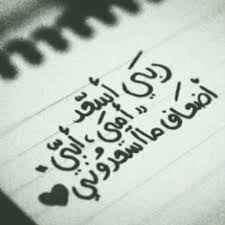 ربي أسعد
" أمي، أبي "
أضعاف ما أسعدوني